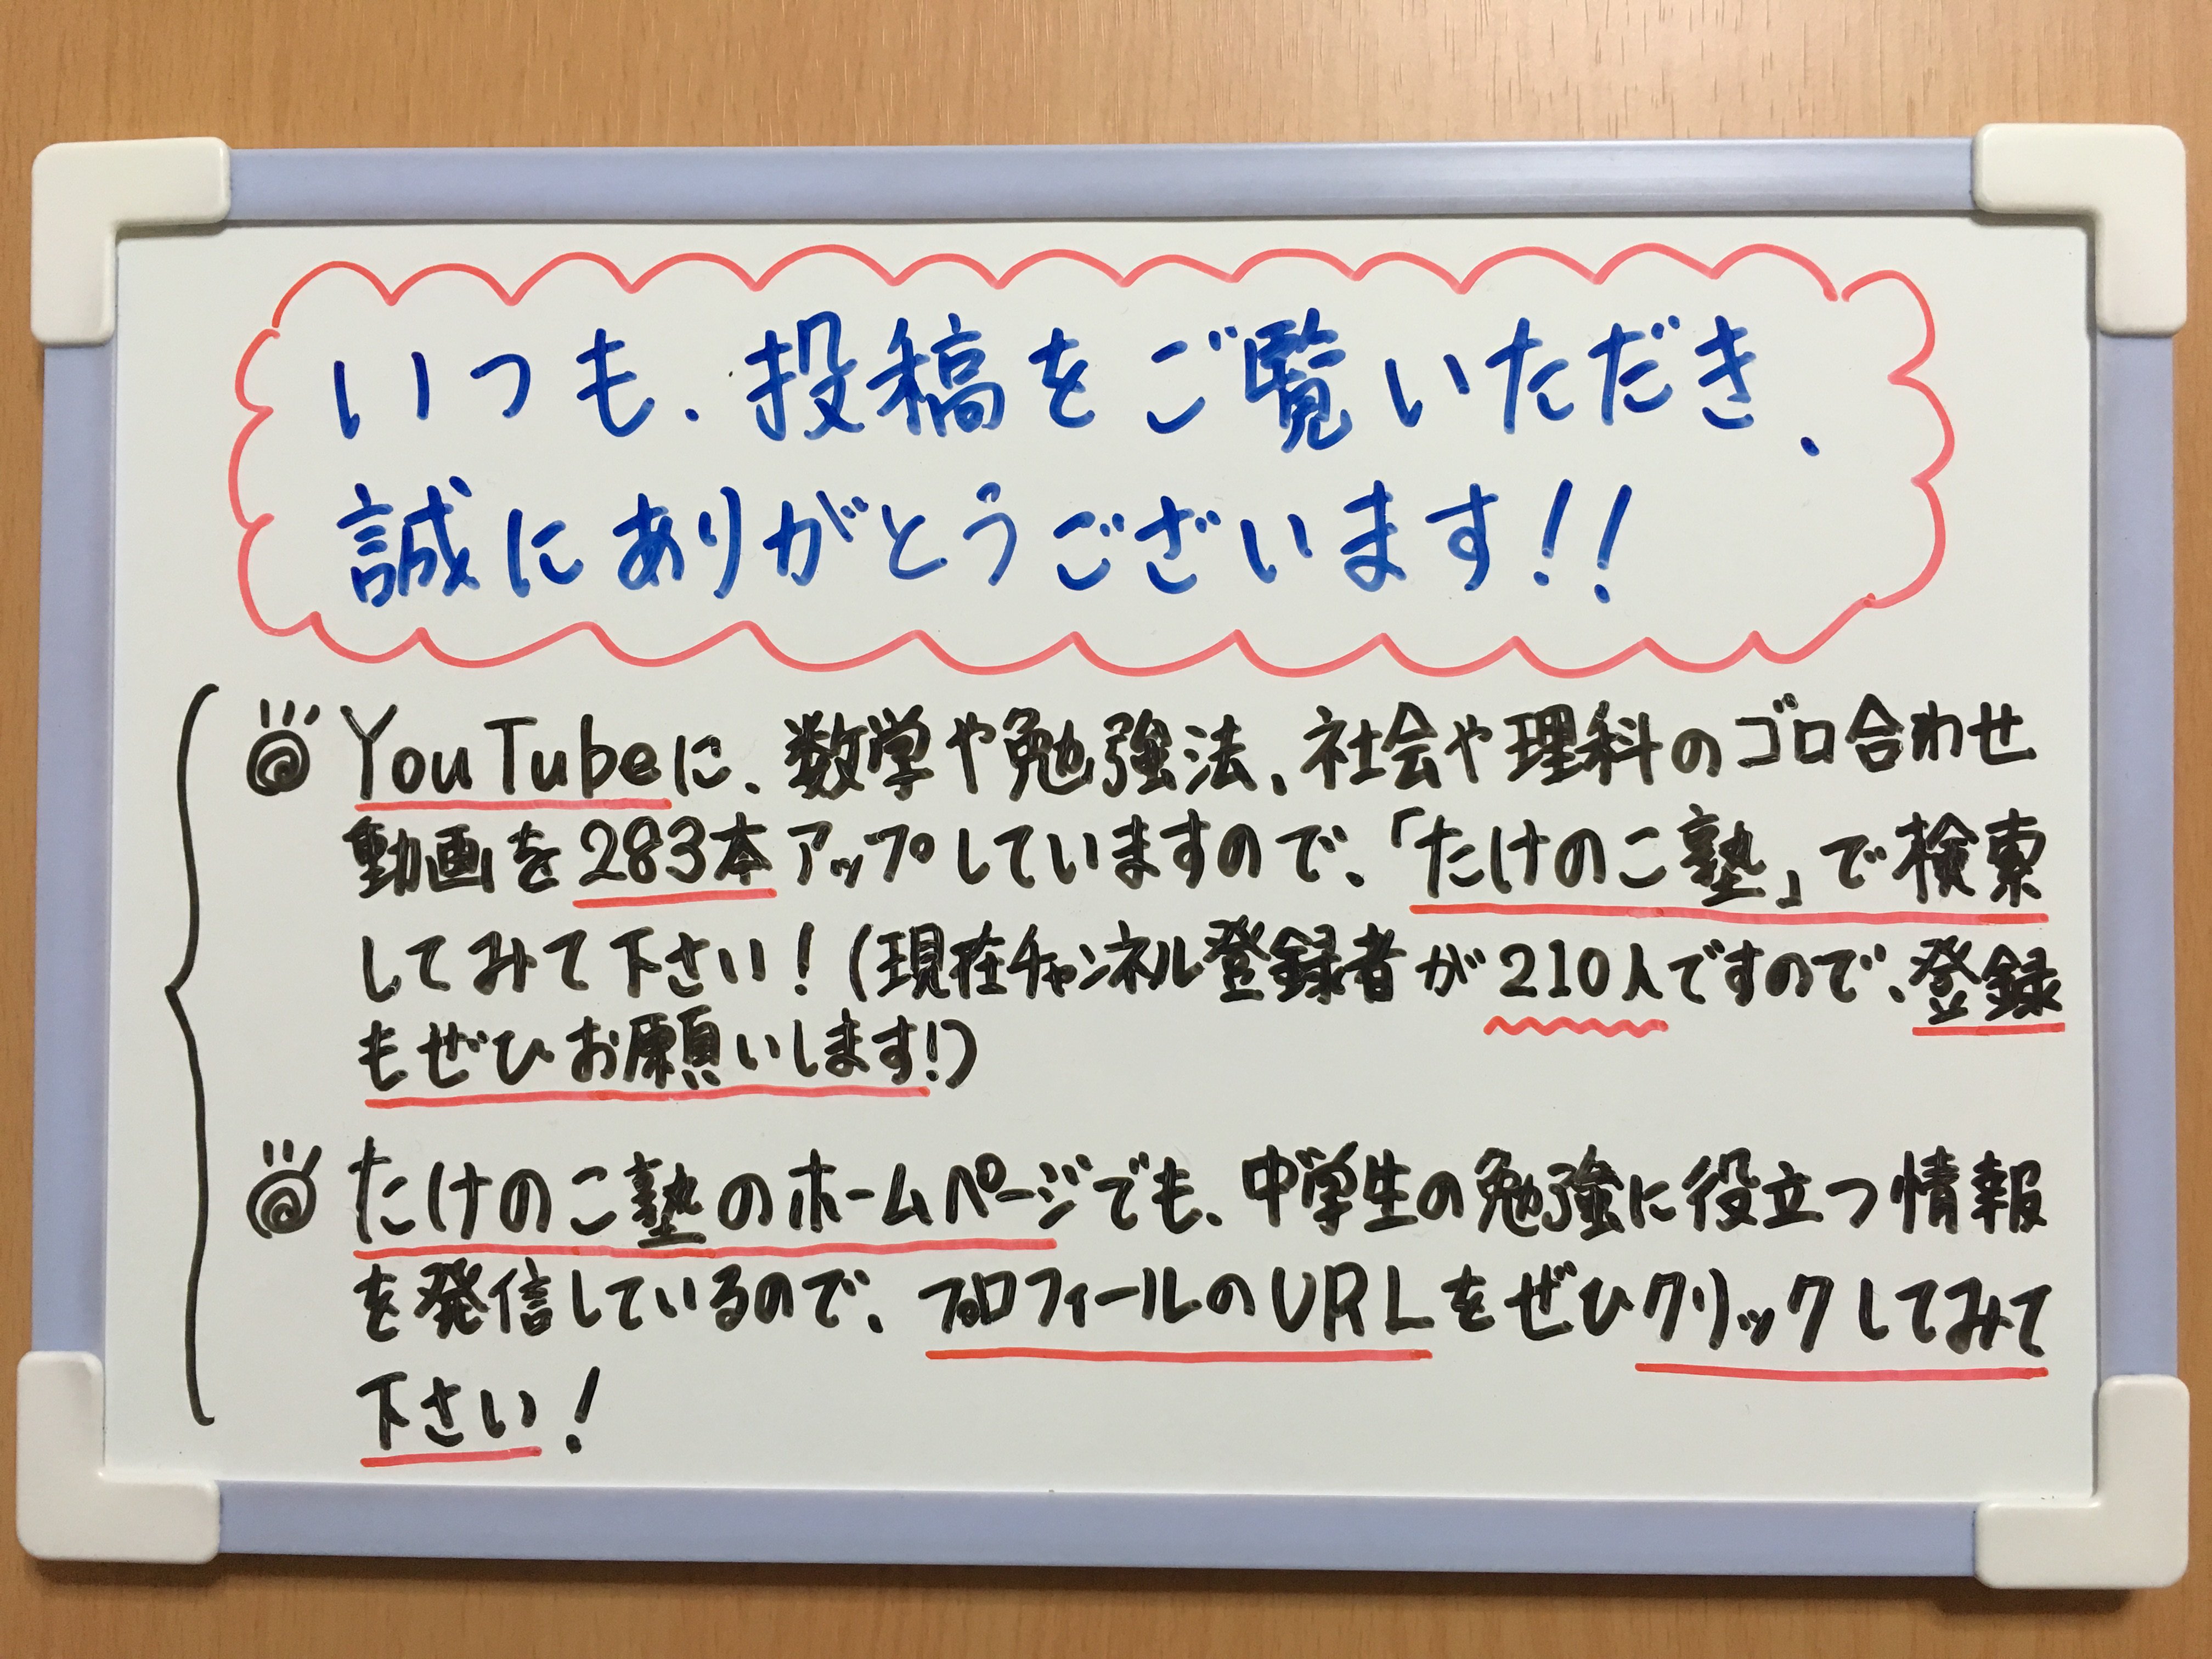 いつも、投稿をご覧いただき、
誠にありがとうございます!!
YouTubeに、数学や勉強法、社会や理科のゴロ合わせ
動画を283本アップしていますので、「たけのこ塾」で検索
してみて下さい!(現在チャンネル登録者が210人ですので、登録
もぜひお願いします!)
たけのこ塾のホームページでも、中学生の勉強に役立つ情報
を発信しているので、プロフィールのURLをぜひクリックしてみて
下さい!